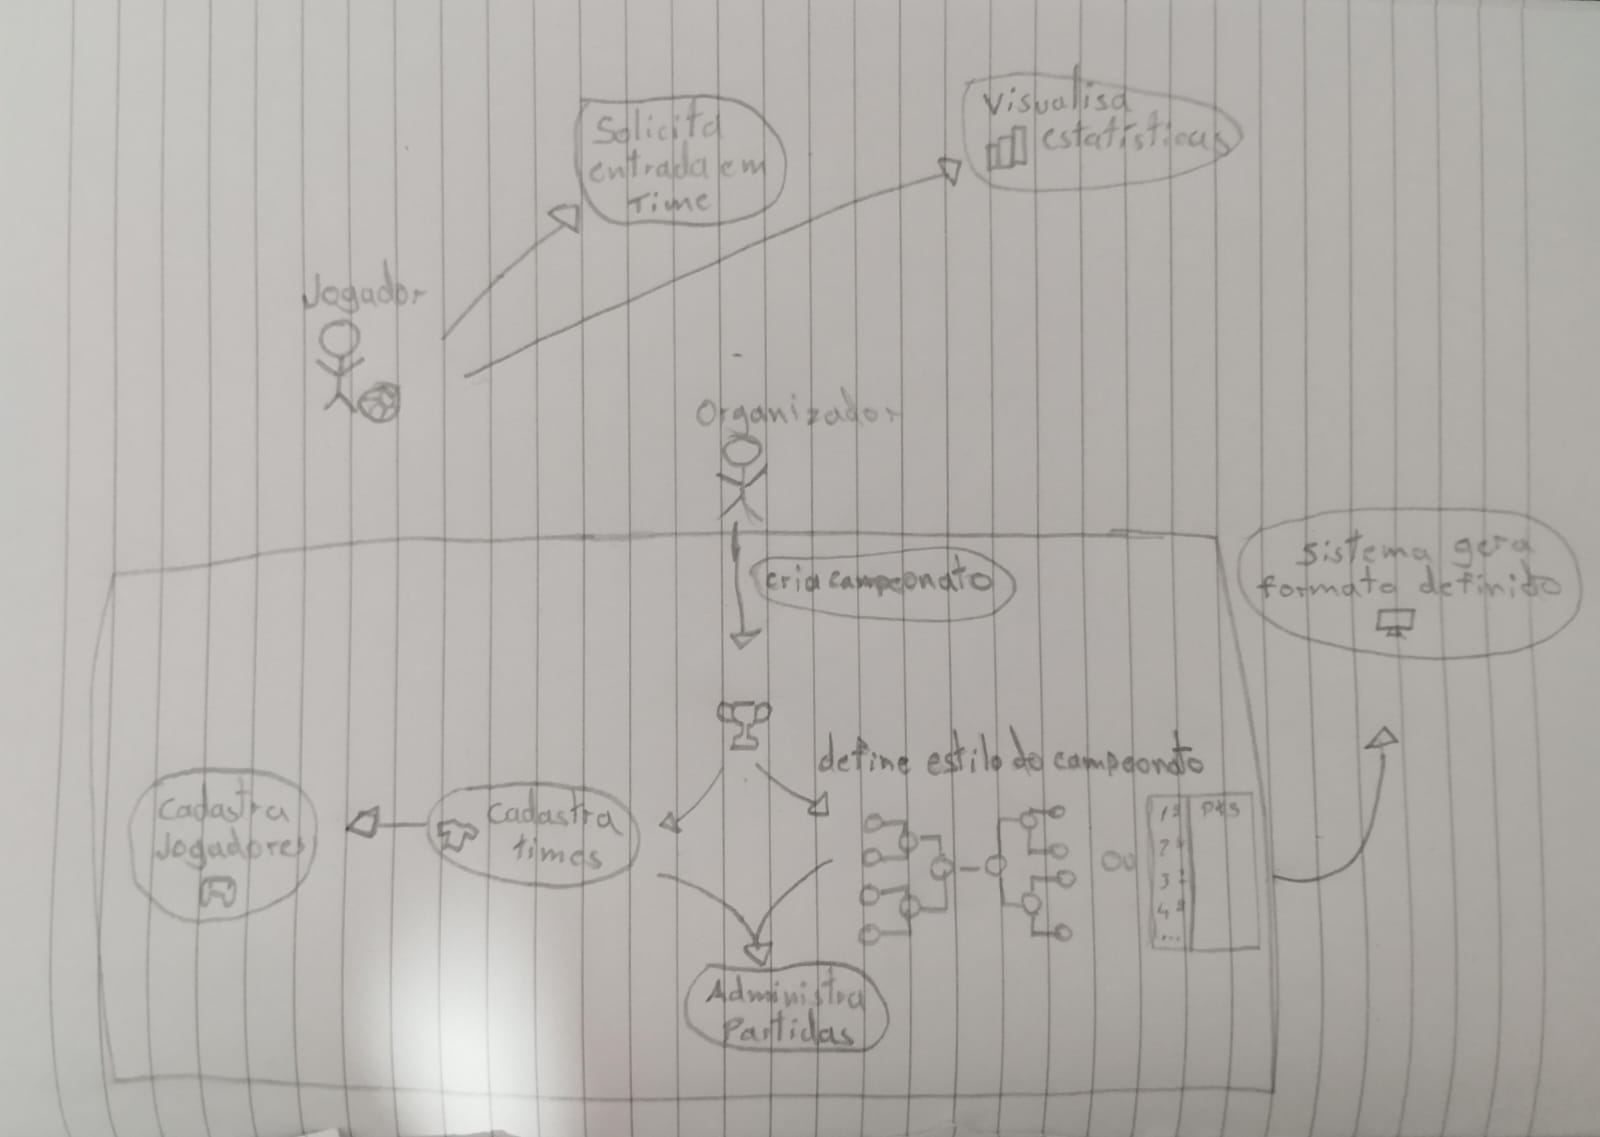 Visualisa
estatísticas
Solicita
entrada em
Time
Jogador
Organizador
cria campeonato
Sistema gera
formato definido
define estilo do campeonato
Cadastra
Jogadores
Cadastra
times
Ou
1º pts
2º
3º
4º
...
Administra
Partidas